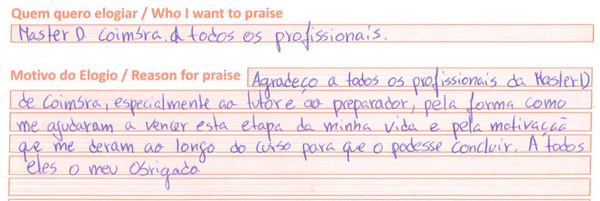 Quem quero elogiar / Who I want to praise
Master D Coimbra. A todos os profissionais.
Motivo do Elogio / Reason for praise Agradeço a todos os profissionais da Master D
de Coimbra, especialmente ao tutor e ao preparador, pela forma como
me ajudaram a vencer esta etapa da minha vida e pela motivação
que me deram ao longo do curso para que o podesse concluir. A todos
eles o meu obrigado.